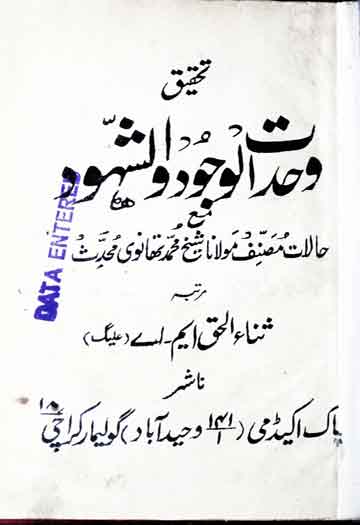 تحقیق
وحدات الوجود والشہود
مع
حالات مصنف مولانا شیخ محمد تھانوی محدث
مرتبہ
ثناء الحق ایم۔اے (علیگ)
ناشر
پاک اکیڈمی (۱۴۱/۱ وحیدآباد) گولیمار کراچی ۱۸
DATA ENTERED